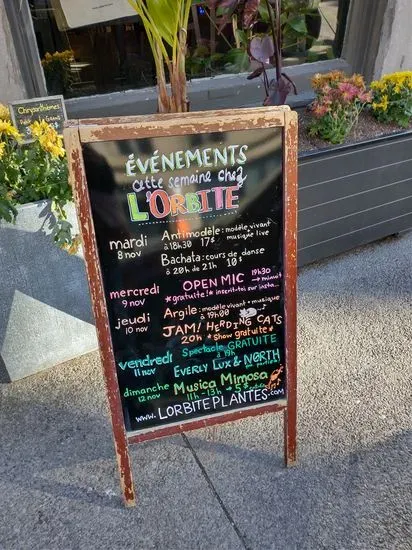 Chrysanthèmes
ÉVÉNEMENTS
cette semaine chez
L'ORBITE
mardi
8 nov
Antimodèle: modèle vivant
à 18h30 17$ musique live
Bachata: cours de danse
à 20h de 21h 10$
mercredi
9 nov
OPEN MIC 19h30
→minuit
*gratuite!* inscrit-toi sur insta...
jeudi
10 nov
Argile: modèle vivant + musique
à 19h00
JAM! HERDING CATS
20h *Show gratuite*
vendredi
11 nov
Spectacle GRATUITE
à 19h
EVERLY LUX & NORTH
dimanche
12 nov
Musica Mimosa
11h - 13h 5$
www.LORBITEPLANTES.com